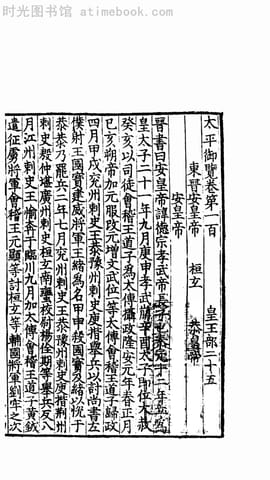 时光图书馆 - atimebook.com
太平御覽卷第一百
皇王部二十五
東晉安皇帝
桓玄
恭皇帝
安皇帝
晉書曰安皇帝諱德宗孝武帝長子也太元十二年立爲
皇太子二十一年九月庚申孝武崩辛酉太子即位大赦
癸亥以司徒會稽王道子爲太傅攝政隆安元年春正月
己亥朔帝加元服改元增文武位一等太傅會稽王道子歸政
四月甲戌兖州刺史王恭豫州刺史庾楷舉兵以討尚書左
僕射王國寶建威將軍王緒爲名甲申殺國寶及緒以悅于
恭恭乃罷兵二年七月兖州刺史王恭豫州刺史庾楷荆州
刺史殷仲堪廣州刺史桓玄南蠻校尉楊佺期等舉兵反八
月江州刺史王愉奔于臨川九月加太傅會稽王道子黄鉞
遣征虜將軍會稽王元顯等討桓玄等輔國將軍劉牢之次